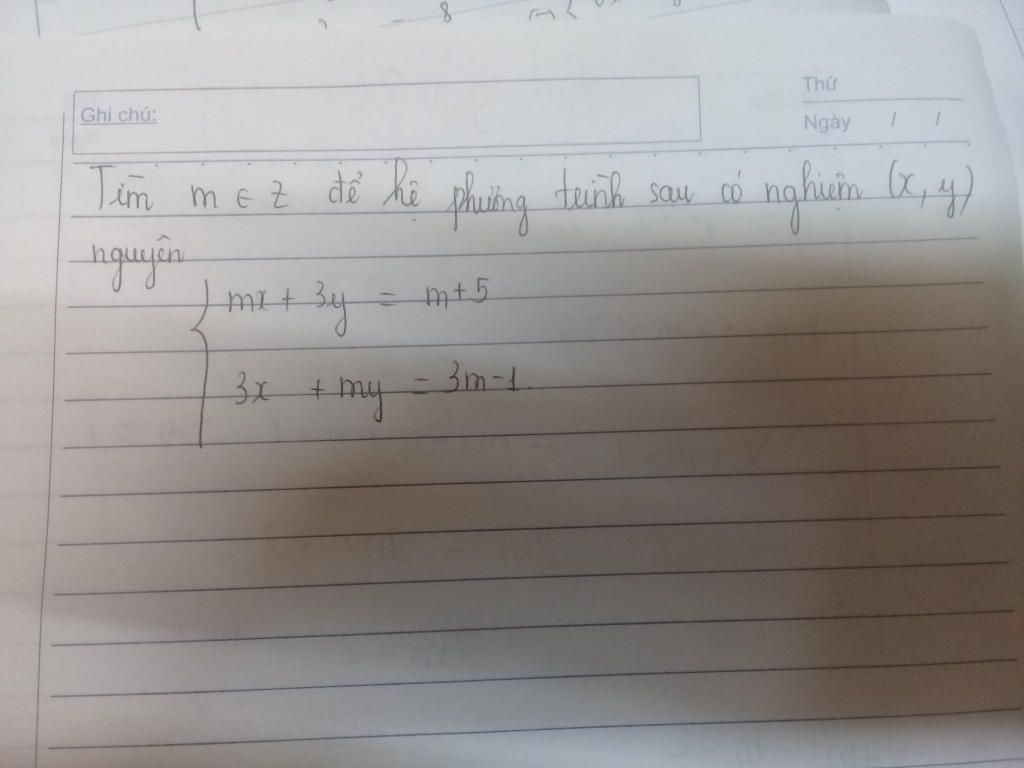 8
Ghi chú:
Thứ
Ngày / /
Tìm m ∈ Z để hệ phương trình sau có nghiệm (x, y)
nguyên
mx + 3y = m+5
3x + my = 3m-1.